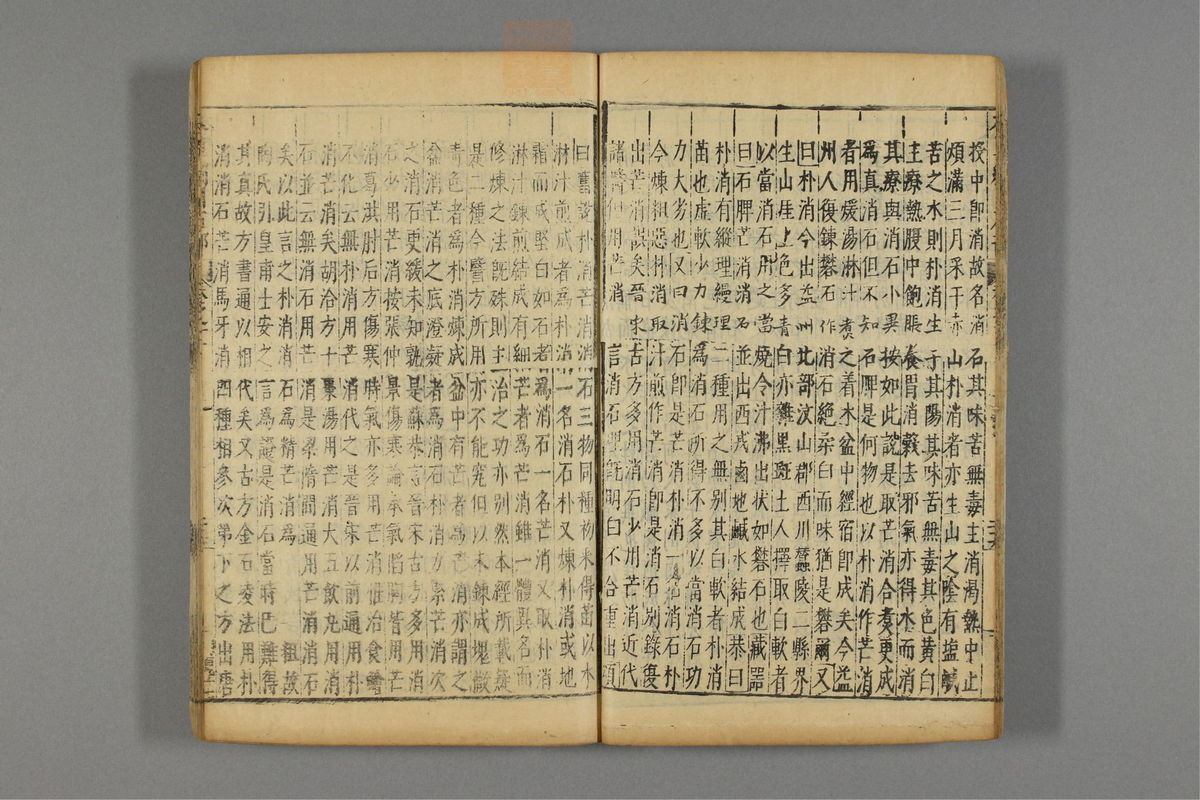 授中即消故名消石其味苦無毒主消渴熱中止
煩滿三月采干赤山朴消者亦生山之陰有塩鹹
苦之水則朴消生于其陽其味苦無毒其色黄白
主療熱腹中飽脹養胃消穀去邪氣亦得水而消
其療與消石小異按如此說是取芒消合煑更成
爲真消石但不知石脾是何物也以朴消作芒消
者用煖湯淋汁煑之着木盆中經宿即成矣今益
州人復鍊礬石作消石絶柔白而味猶是礬爾又
曰朴消今出益州北部汶山郡西川蠶陵二縣界
生山厓上色多青白亦雜黒斑土人擇取白軟者
以當消石用之當燒令汁沸出状如礬石也藏器
曰石脾芒消消石並出西戎鹵地鹹水結成恭曰
朴消有縱理縵理二種用之無别其白軟者朴消
苗也虚軟少力鍊爲消石所得不多以當消石功
力大劣也又曰消石即是芒消朴消一名消石朴
今煉粗惡朴消取汁煎作芒消即是消石别錄復
出芒消誤矣晉宋古方多用消石少用芒消近代
諸醫但用芒消言消石理旣明白不合重出頌
曰舊說朴消芒消消石三物同種初采得苗以水
淋汁煎成者爲朴消一名消石朴又煉朴消或地
霜而成堅白如石者爲消石一名芒消又取朴消
淋汁鍊煎結成有細芒者爲芒消雖一體異名而
修煉之法旣殊則主治之功亦别然本經所載疑
是二種今醫方所用亦不能究但以未鍊成塊微
青色者爲朴消煉成盆中有芒者爲芒消亦謂之
盆消芒消之底澄凝者爲消石朴消力緊芒消次
之消石更緩未知孰是蘇恭言晉宋古方多用消
石少用芒消按張仲景傷寒論承氣陷胸皆用芒
消葛洪肘后方傷寒時氣亦多用芒消惟治食鱠
不化云無朴消用芒消代之是晉宋以前通用朴
消芒消矣胡洽方十棗湯用芒消大五飲丸用消
石並云無消石用芒消是梁隋間通用芒消消石
矣以此言之朴消消石爲精芒消爲粗故
陶氏引皇甫士安之言爲證是消石當時已難得
其真故方書通以相代矣又古方金石凌法用朴
消消石芒消馬牙消四種相參次第下之方出唐